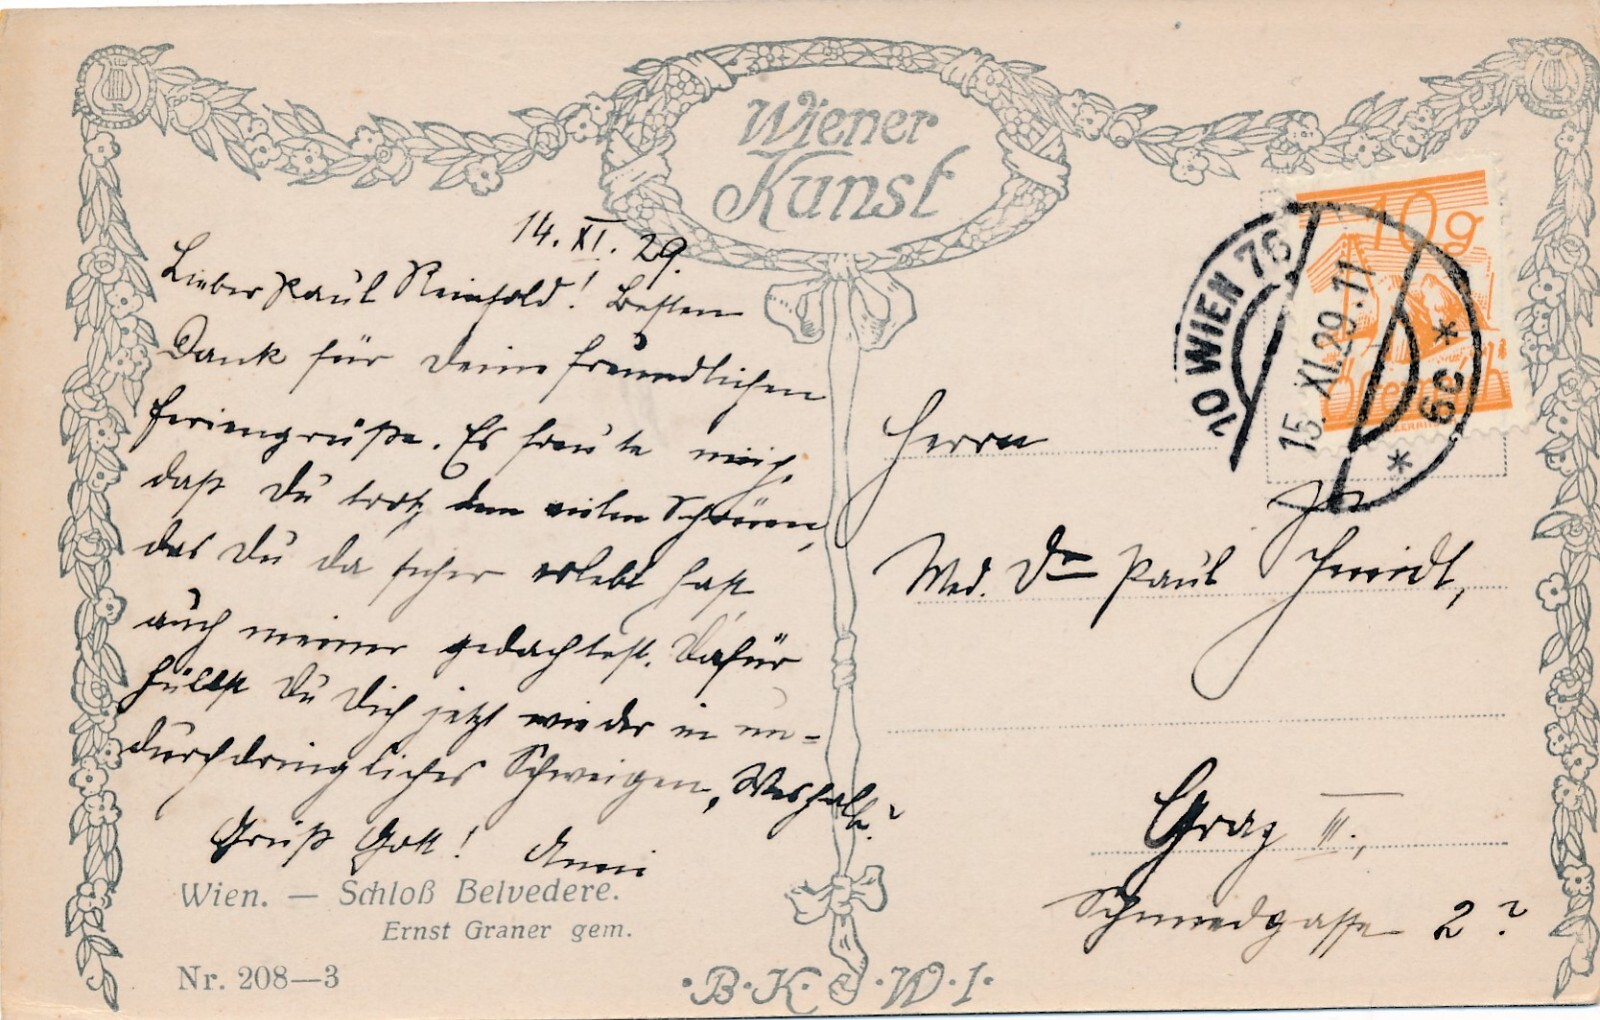 Wiener
Kunst
14. XI. 29.
Lieber Paul Reinhold! Besten
Dank für Deine freundlichen
Feriengrüße. Es freute mich,
daß Du trotz dem vielen Schönen,
das Du da sicher erlebt hast
auch meiner gedachtest. Dafür
hüllst Du Dich jetzt wieder in un=
durchdringliches Schweigen, Weshalb?
Grüß Gott! Anni
Wien. — Schloß Belvedere.
Ernst Graner gem.
Nr. 208—3
·B·K·W·I·
10 g
Österreich
10 WIEN 76
15. XI. 29. 11
* 6c *
Herrn
Med. Dr Paul Schmidt,
Graz III.,
Schmiedgasse 2?